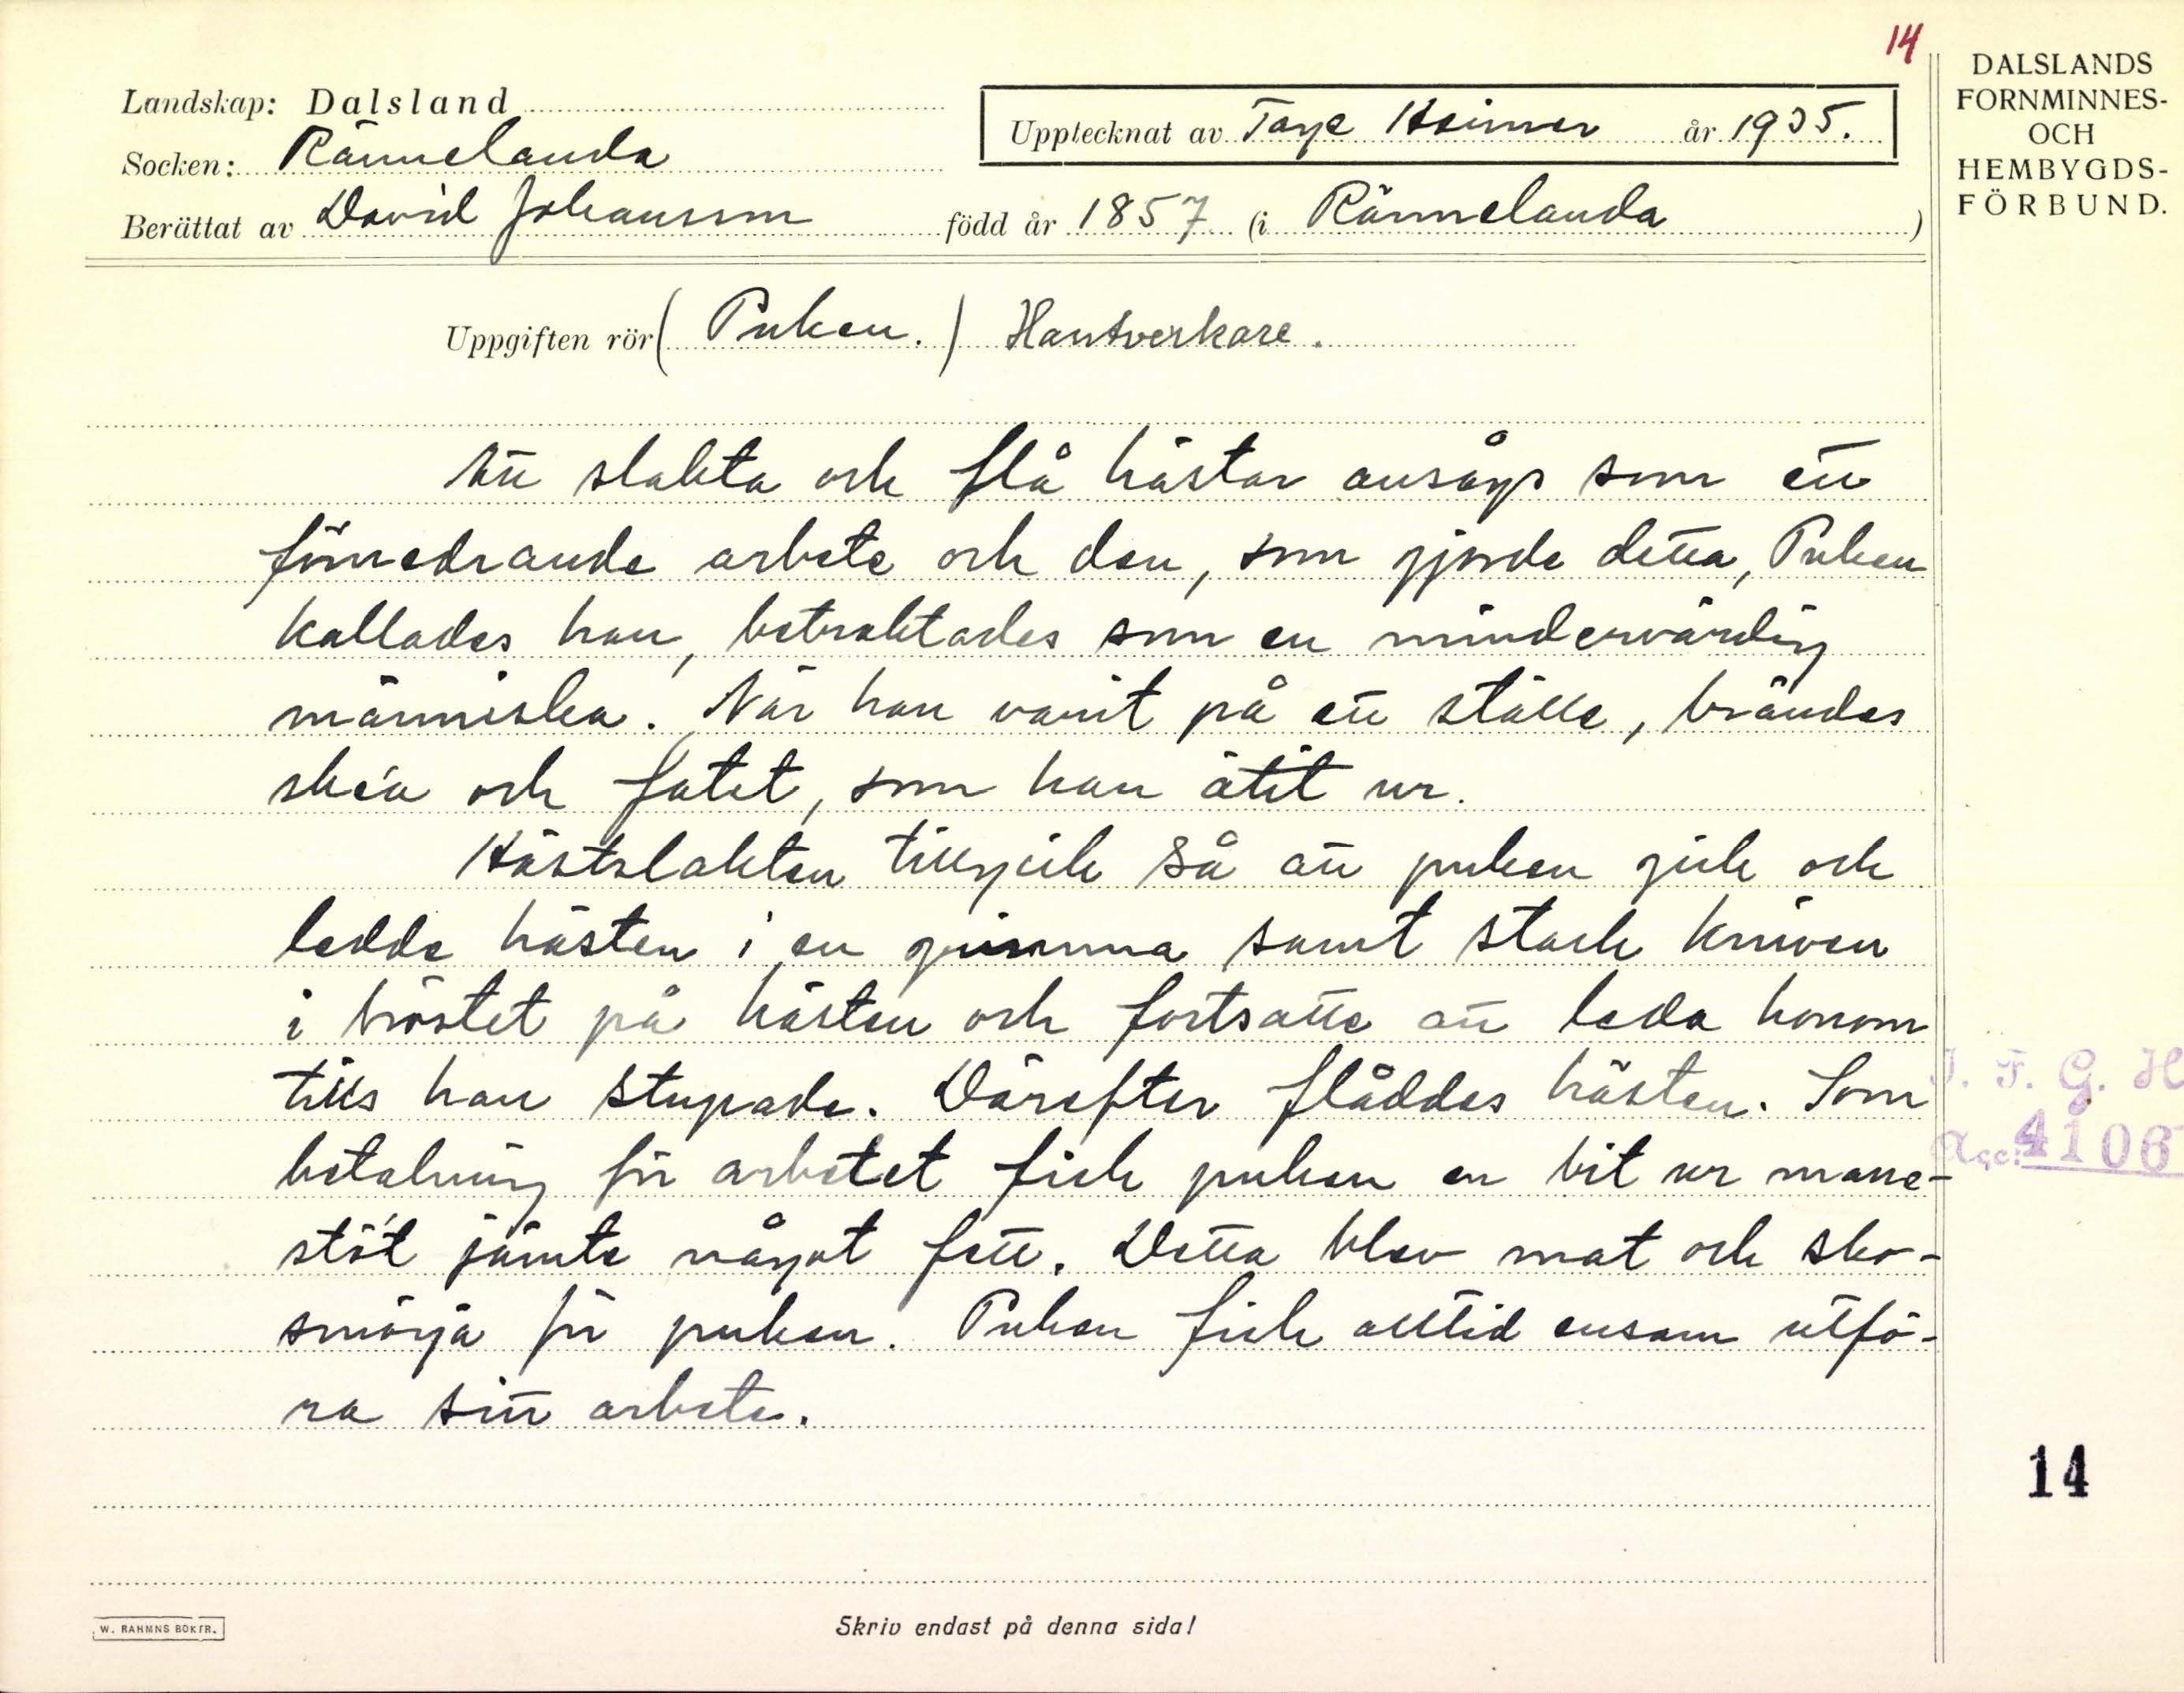 14
DALSLANDS
FORNMINNES-
OCH
HEMBYGDS-
FÖRBUND.
Landskap: Dalsland
Upptecknat av Tage Heimer år 1935.
Socken: Rännelanda
Berättat av David Johansson född år 1857 (i Rännelanda)
Uppgiften rör (Puken.) Hantverkare.
Att slakta och flå hästar ansågs som ett
förnedrande arbete och den, som gjorde detta, Puken
kallades han, betraktades som en mindervärdig
människa. När han varit på ett ställe, brändes
skéa och fatet, som han ätit ur.
Hästslakten tillgick så att puken gick och
ledde hästen i en grimma samt stack kniven
i bröstet på hästen och fortsatte att leda honom
tills han stupade. Därefter flåddes hästen. Som
betalning för arbetet fick puken en bit ur mane-
stö't jämte något fett. Detta blev mat och sko-
smörja för puken. Puken fick alltid ensam utfö-
ra sitt arbete.
I. F. G. H
Acc: 4106
14
W. RAHMNS BOKTR.
Skriv endast på denna sida!